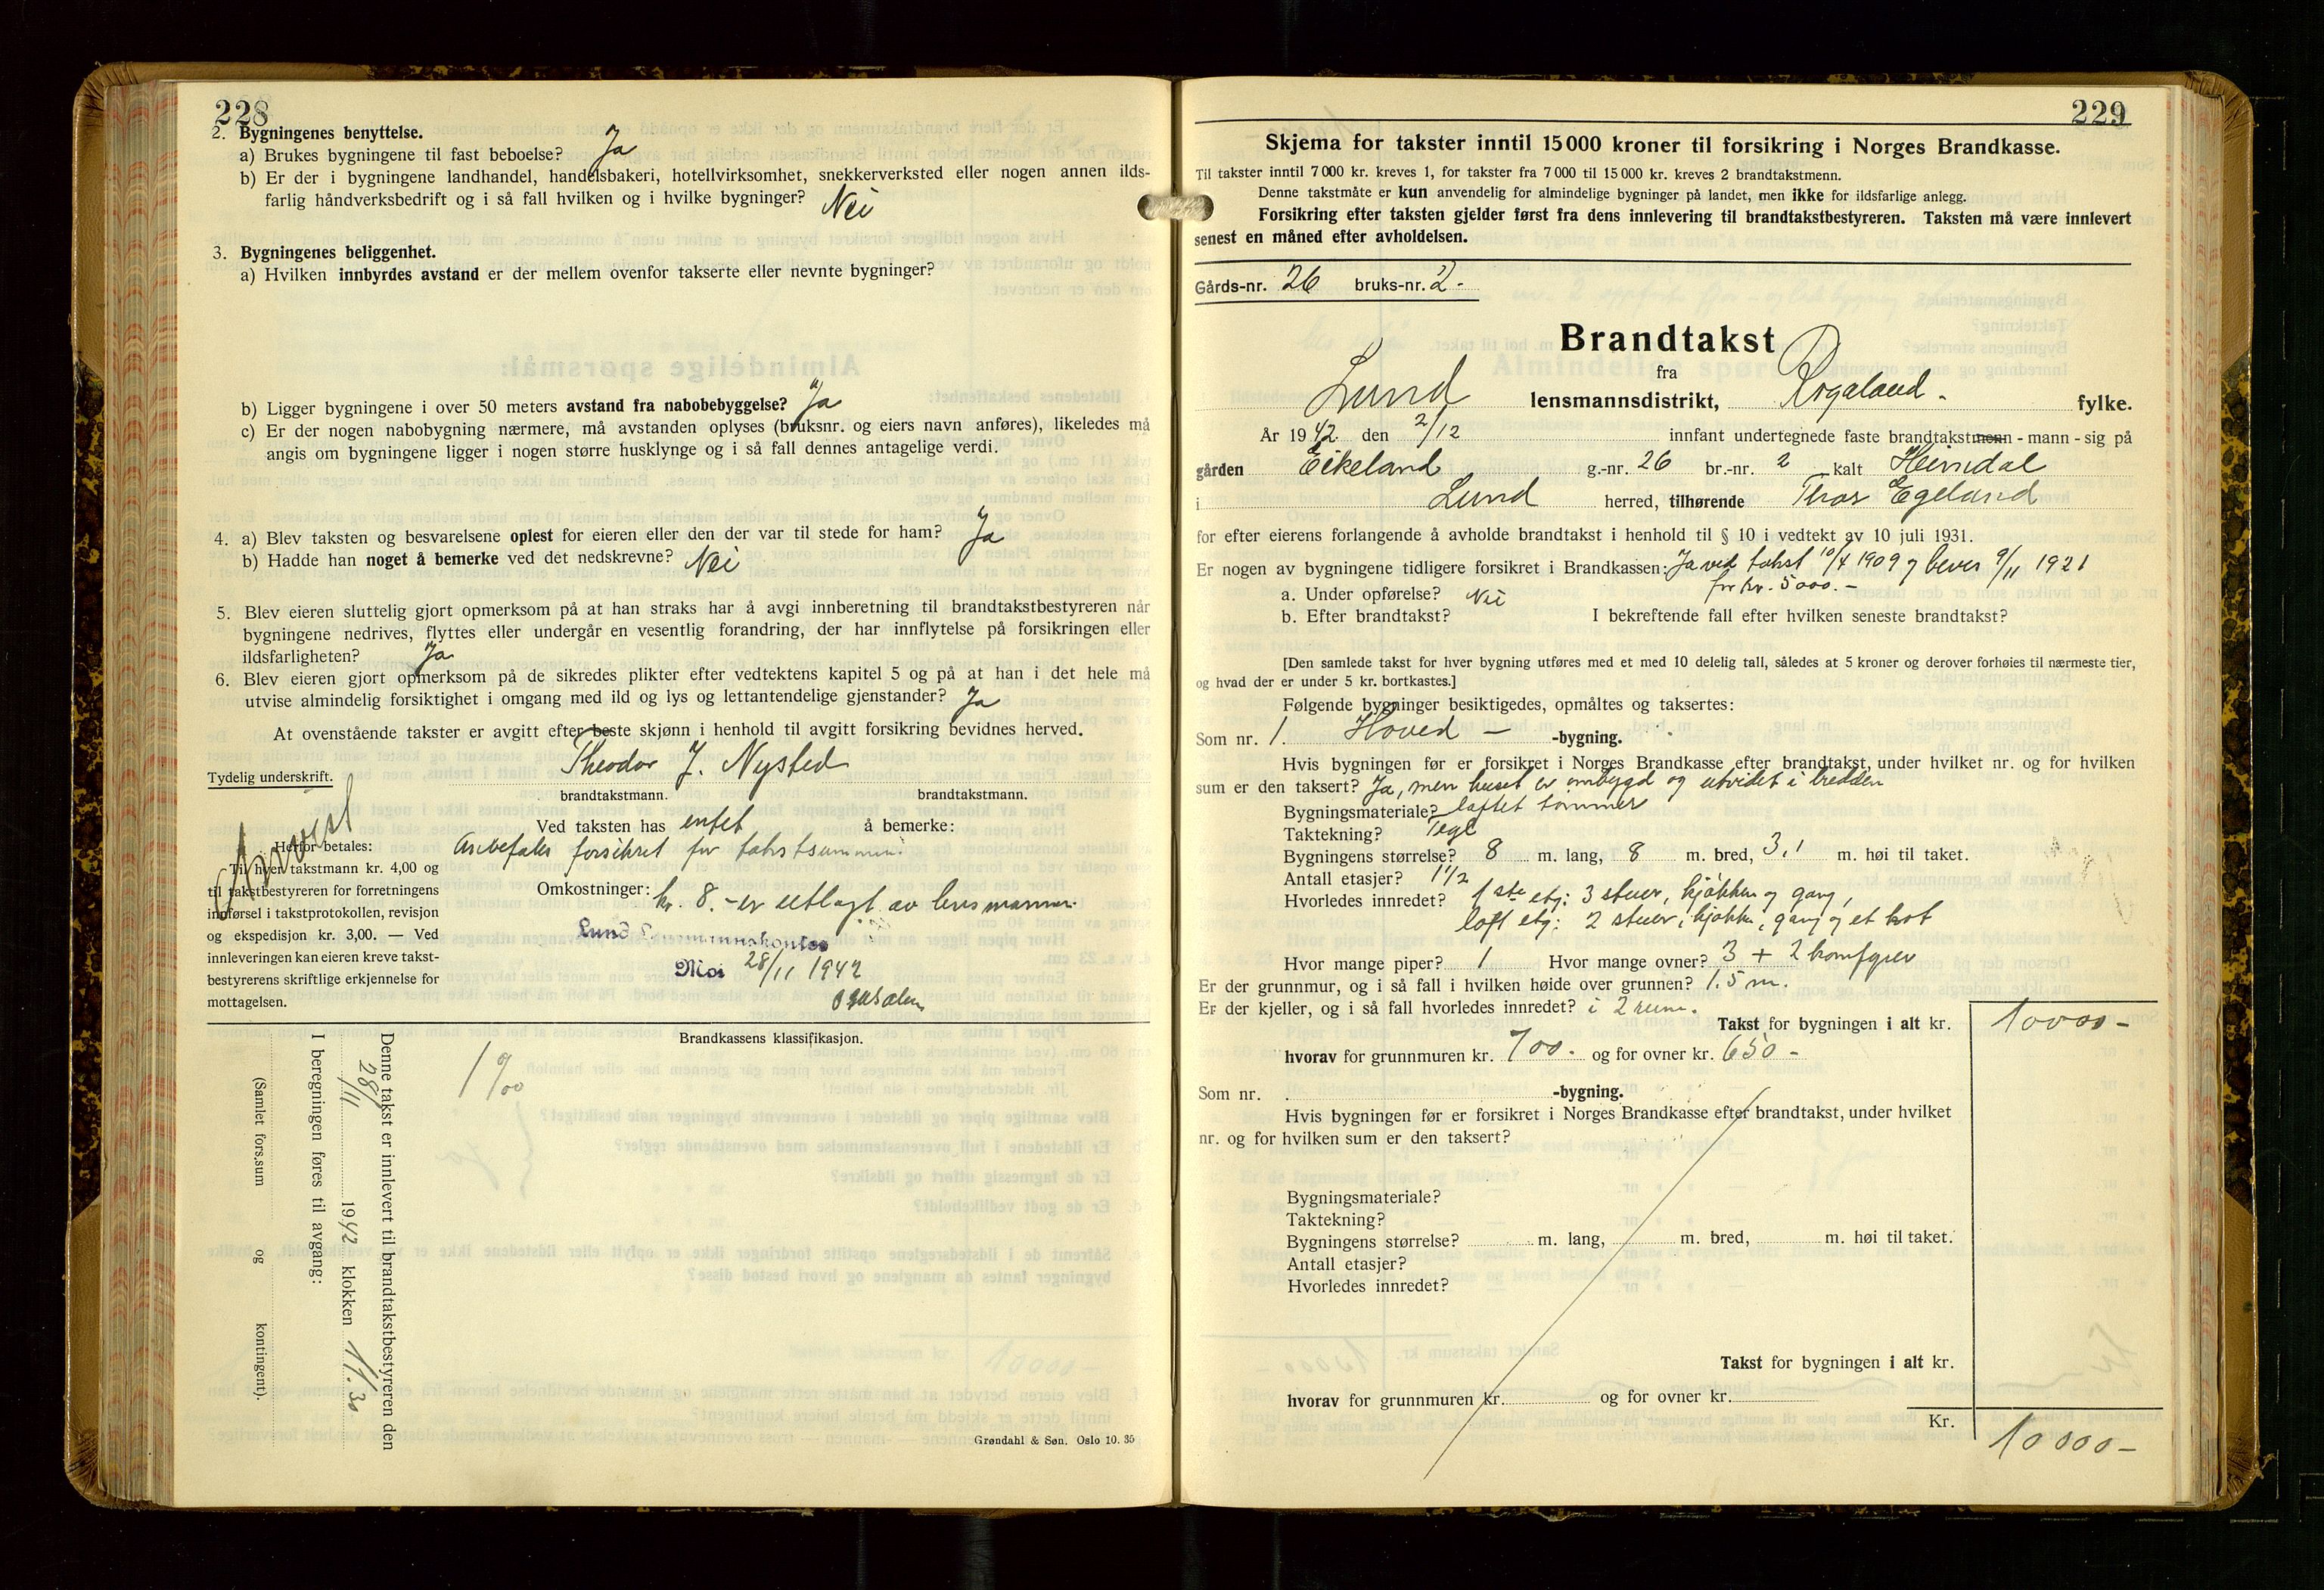 228
2. Bygningenes benyttelse.
a) Brukes bygningene til fast beboelse? Ja
b) Er der i bygningene landhandel, handelsbakeri, hotellvirksomhet, snekkerverksted eller nogen annen ilds-
farlig håndverksbedrift og i så fall hvilken og i hvilke bygninger? Nei
3. Bygningenes beliggenhet.
a) Hvilken innbyrdes avstand er der mellem ovenfor takserte eller nevnte bygninger?
b) Ligger bygningene i over 50 meters avstand fra nabobebyggelse? Ja
c) Er der nogen nabobygning nærmere, må avstanden oplyses (bruksnr. og eiers navn anføres), likeledes må
angis om bygningene ligger i nogen større husklynge og i så fall dennes antagelige verdi.
4. a) Blev taksten og besvarelsene oplest for eieren eller den der var til stede for ham? Ja
b) Hadde han noget å bemerke ved det nedskrevne? Nei
5. Blev eieren sluttelig gjort opmerksom på at han straks har å avgi innberetning til brandtakstbestyreren når
bygningene nedrives, flyttes eller undergår en vesentlig forandring, der har innflytelse på forsikringen eller
ildsfarligheten? Ja
6. Blev eieren gjort opmerksom på de sikredes plikter efter vedtektens kapitel 5 og på at han i det hele må
utvise almindelig forsiktighet i omgang med ild og lys og lettantendelige gjenstander? Ja
At ovenstående takster er avgitt efter beste skjønn i henhold til avgitt forsikring bevidnes herved.
Theodor J. Nysted
Tydelig underskrift.
brandtakstmann. brandtakstmann.
Ved taksten has entet å bemerke:
Anbefales forsikret for takstsummen.
Herfor betales:
Til hver takstmann kr. 4,00 og
til takstbestyreren for forretningens
innførsel i takstprotokollen, revisjon
og ekspedisjon kr. 3,00. — Ved
innleveringen kan eieren kreve takst-
bestyrerens skriftlige erkjennelse for
mottagelsen.
Omkostninger: kr. 8.- er utlagt av lensmannen.
Lund Lensmannskontor
Moi 28/11 1942
Brandkassens klassifikasjon.
1 ‰
Denne takst er innlevert til brandtakstbestyreren den
28/11 1942 klokken 11.30
I beregningen føres til avgang:
(Samlet fors.sum og kontingent).
Grøndahl & Søn. Oslo 10. 35
229
Skjema for takster inntil 15 000 kroner til forsikring i Norges Brandkasse.
Til takster inntil 7 000 kr. kreves 1, for takster fra 7 000 til 15 000 kr. kreves 2 brandtakstmenn.
Denne takstmåte er kun anvendelig for almindelige bygninger på landet, men ikke for ildsfarlige anlegg.
Forsikring efter taksten gjelder først fra dens innlevering til brandtakstbestyreren. Taksten må være innlevert
senest en måned efter avholdelsen.
Gårds-nr. 26 bruks-nr. 2.
Brandtakst
fra
Lund lensmannsdistrikt, Rogaland. fylke.
År 1942 den 2/12 innfant undertegnede faste brandtakstmenn - mann - sig på
gården Eikeland g.-nr. 26 br.-nr. 2 kalt Heimdal
i Lund herred, tilhørende Thor Egeland
for efter eierens forlangende å avholde brandtakst i henhold til § 10 i vedtekt av 10 juli 1931.
Er nogen av bygningene tidligere forsikret i Brandkassen: Ja ved takst 10/4 1909 og bever 9/11 1921
for kr. 5000.-
a. Under opførelse? Nei
b. Efter brandtakst? I bekreftende fall efter hvilken seneste brandtakst?
[Den samlede takst for hver bygning utføres med et med 10 delelig tall, således at 5 kroner og derover forhøies til nærmeste tier,
og hvad der er under 5 kr. bortkastes.]
Følgende bygninger besiktigedes, opmåltes og taksertes:
Som nr. 1. Hoved - -bygning.
Hvis bygningen før er forsikret i Norges Brandkasse efter brandtakst, under hvilket nr. og for hvilken
sum er den taksert? Ja, men huset er ombygd og utvidet i bredden
Bygningsmateriale? laftet tømmer
Taktekning? Tegl
Bygningens størrelse? 8 m. lang, 8 m. bred, 3,1 m. høi til taket.
Antall etasjer? 1 1/2
Hvorledes innredet? 1ste etj: 3 stuer, kjøkken og gang,
loft etj: 2 stuer, kjøkken, gang og et kot
Hvor mange piper? 1 Hvor mange ovner? 3 + 2 komfyrer
Er der grunnmur, og i så fall i hvilken høide over grunnen? 1.5 m.
Er der kjeller, og i så fall hvorledes innredet? i 2 rum.
Takst for bygningen i alt kr. 10000-
hvorav for grunnmuren kr. 700.- og for ovner kr. 650-
Som nr. . -bygning.
Hvis bygningen før er forsikret i Norges Brandkasse efter brandtakst, under hvilket
nr. og for hvilken sum er den taksert?
Bygningsmateriale?
Taktekning?
Bygningens størrelse? m. lang, m. bred, m. høi til taket.
Antall etasjer?
Hvorledes innredet?
Takst for bygningen i alt kr.
hvorav for grunnmuren kr. og for ovner kr.
Kr. 10000-